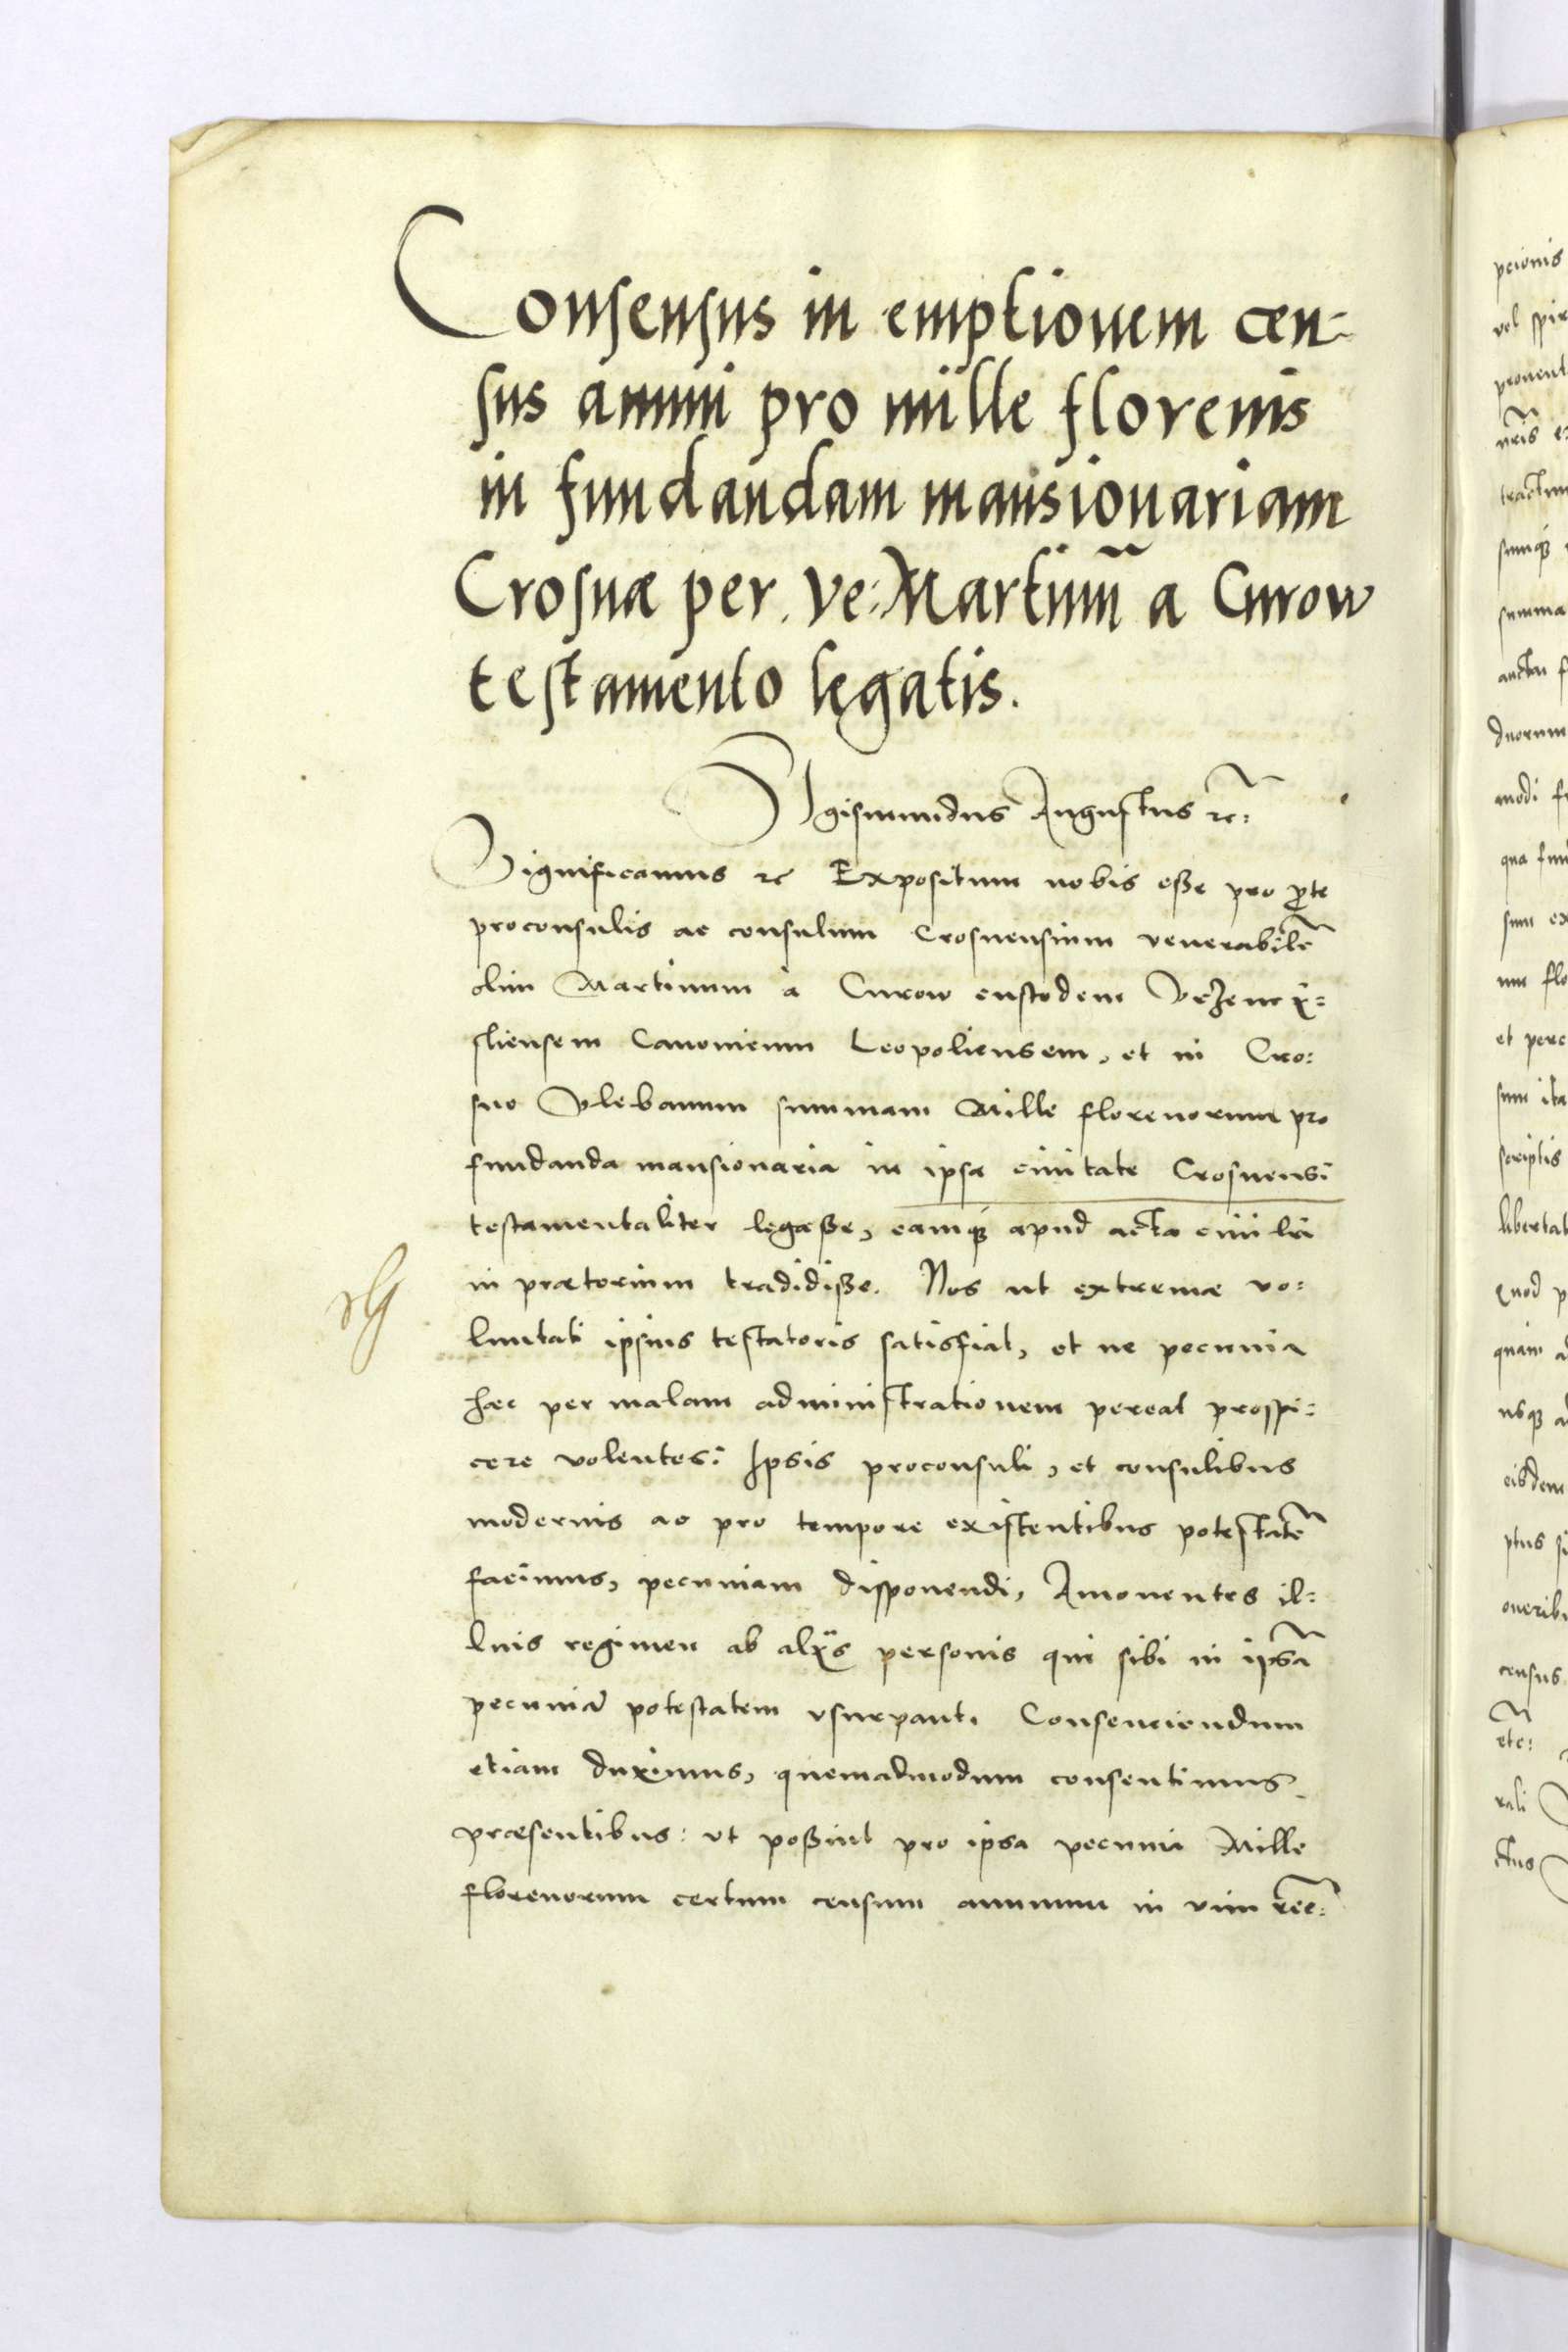 Consensus in emptionem cen-
sus annui pro mille florenis
in fundandam mansionariam
Crosnæ per. Ve: Martinũ a Curow
testamento legatis.
Sigismundus Augustus ꝛc:
Significamus ꝛc Expositum nobis eße pro ꝑte
proconsulis ac consulum Crosnensium venerabilē
olim Martinum à Curow custodem
sliensem Canonicum Leopoliensem, et in Cro:
sno Plebanum summam Mille florenorum pro
fundanda mansionaria in ipsa ciuitate Crosnensi
testamentaliter legaße, eamqꝫ apud acta ciuilia
in prætorium tradidiße. Nos ut extremæ vo:
luntati ipsius testatoris satisfiat, et ne pecunia
hæc per malam administrationem pereat prospi:
cere volentes: Ipsis proconsuli, et consulibus
modernis ac pro tempore existentibus potestatē
facimus, pecuniam disponendi, Amouentes il:
lius regimen ab alÿs personis qui sibi in ipsã
pecuniã potestatem vsurpant. Consenciendum
etiam duximus, quemadmodum consentimus
præsentibus: vt poßint pro ipsa pecunia Mille
florenorum certum censum annuum in vim reē:
pcionis
vel spir
prouent
nr̃is ex
tractum
sumqꝫ
summa
duorum
modi f
qua fun
sum ex
num flo
et perc
sum ita
scriptis
libertat
Quod p
quam a
usqꝫ a
eisdem
ptus si
oneribu
census
etc:
rali
ctus